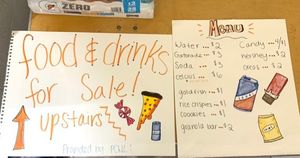 ZERO
food & drinks
for Sale!
upstairs
Provided by PCHC!
Menu
Water ... $2
Gatorade ... $3
Soda ... $3
celsius ... $6
goldfish ... $1
rice crispies ... $1
cookies ... $1
granola bar ... $2
Candy ... 4/$1
hershey ... $2